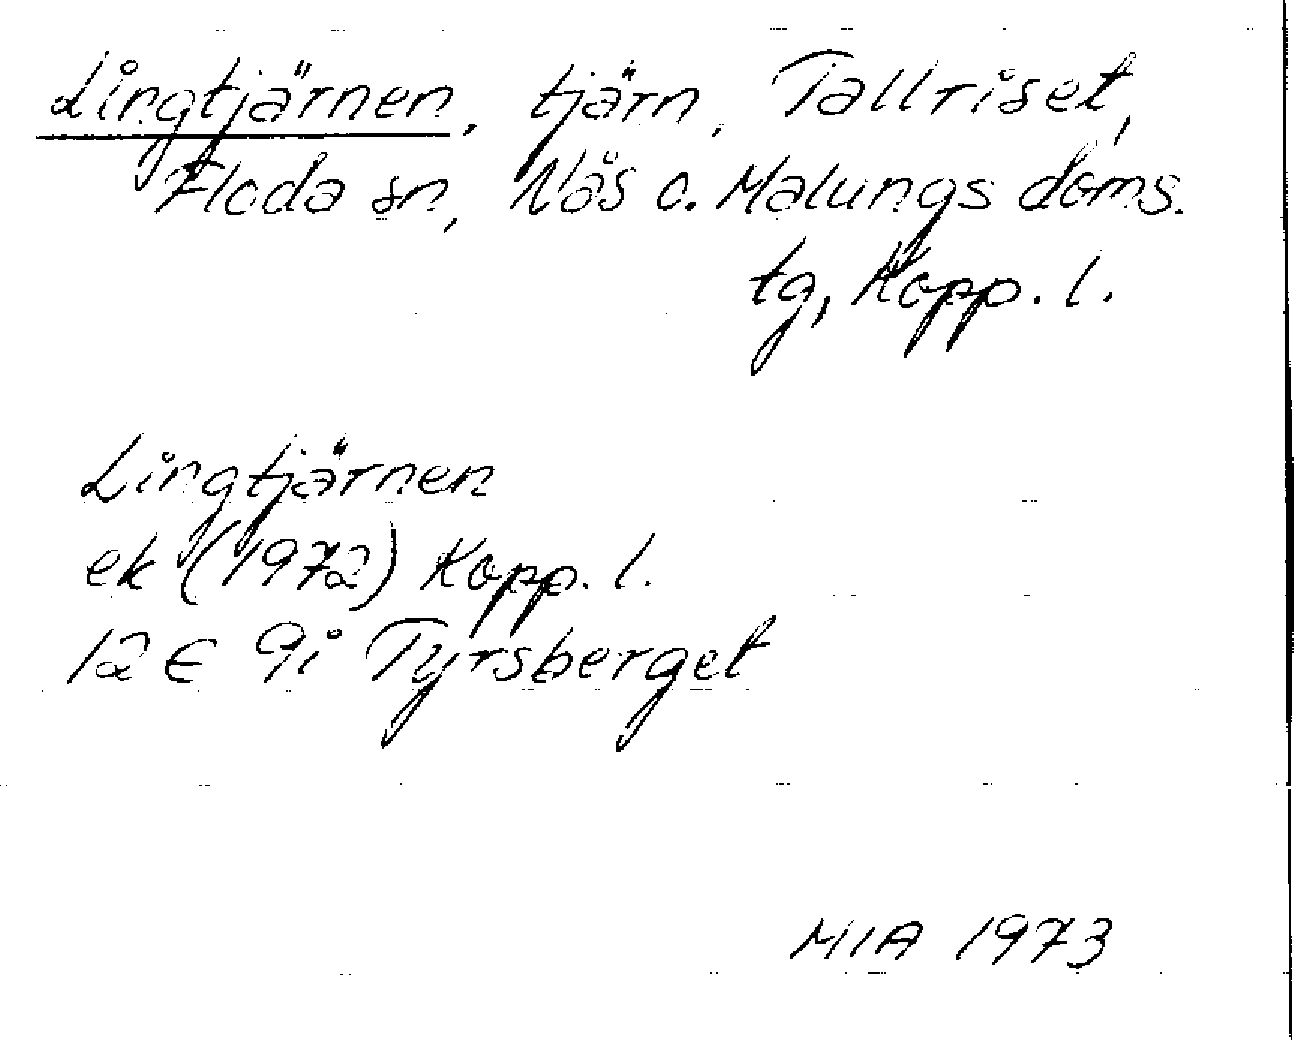 Lingtjärnen, tjärn, Tallriset,
Floda sn, Nås o. Malungs doms.
tg, Kopp. l.
Lingtjärnen
ek (1972) Kopp. l.
12 E 9i Tyrsberget
MIA 1973